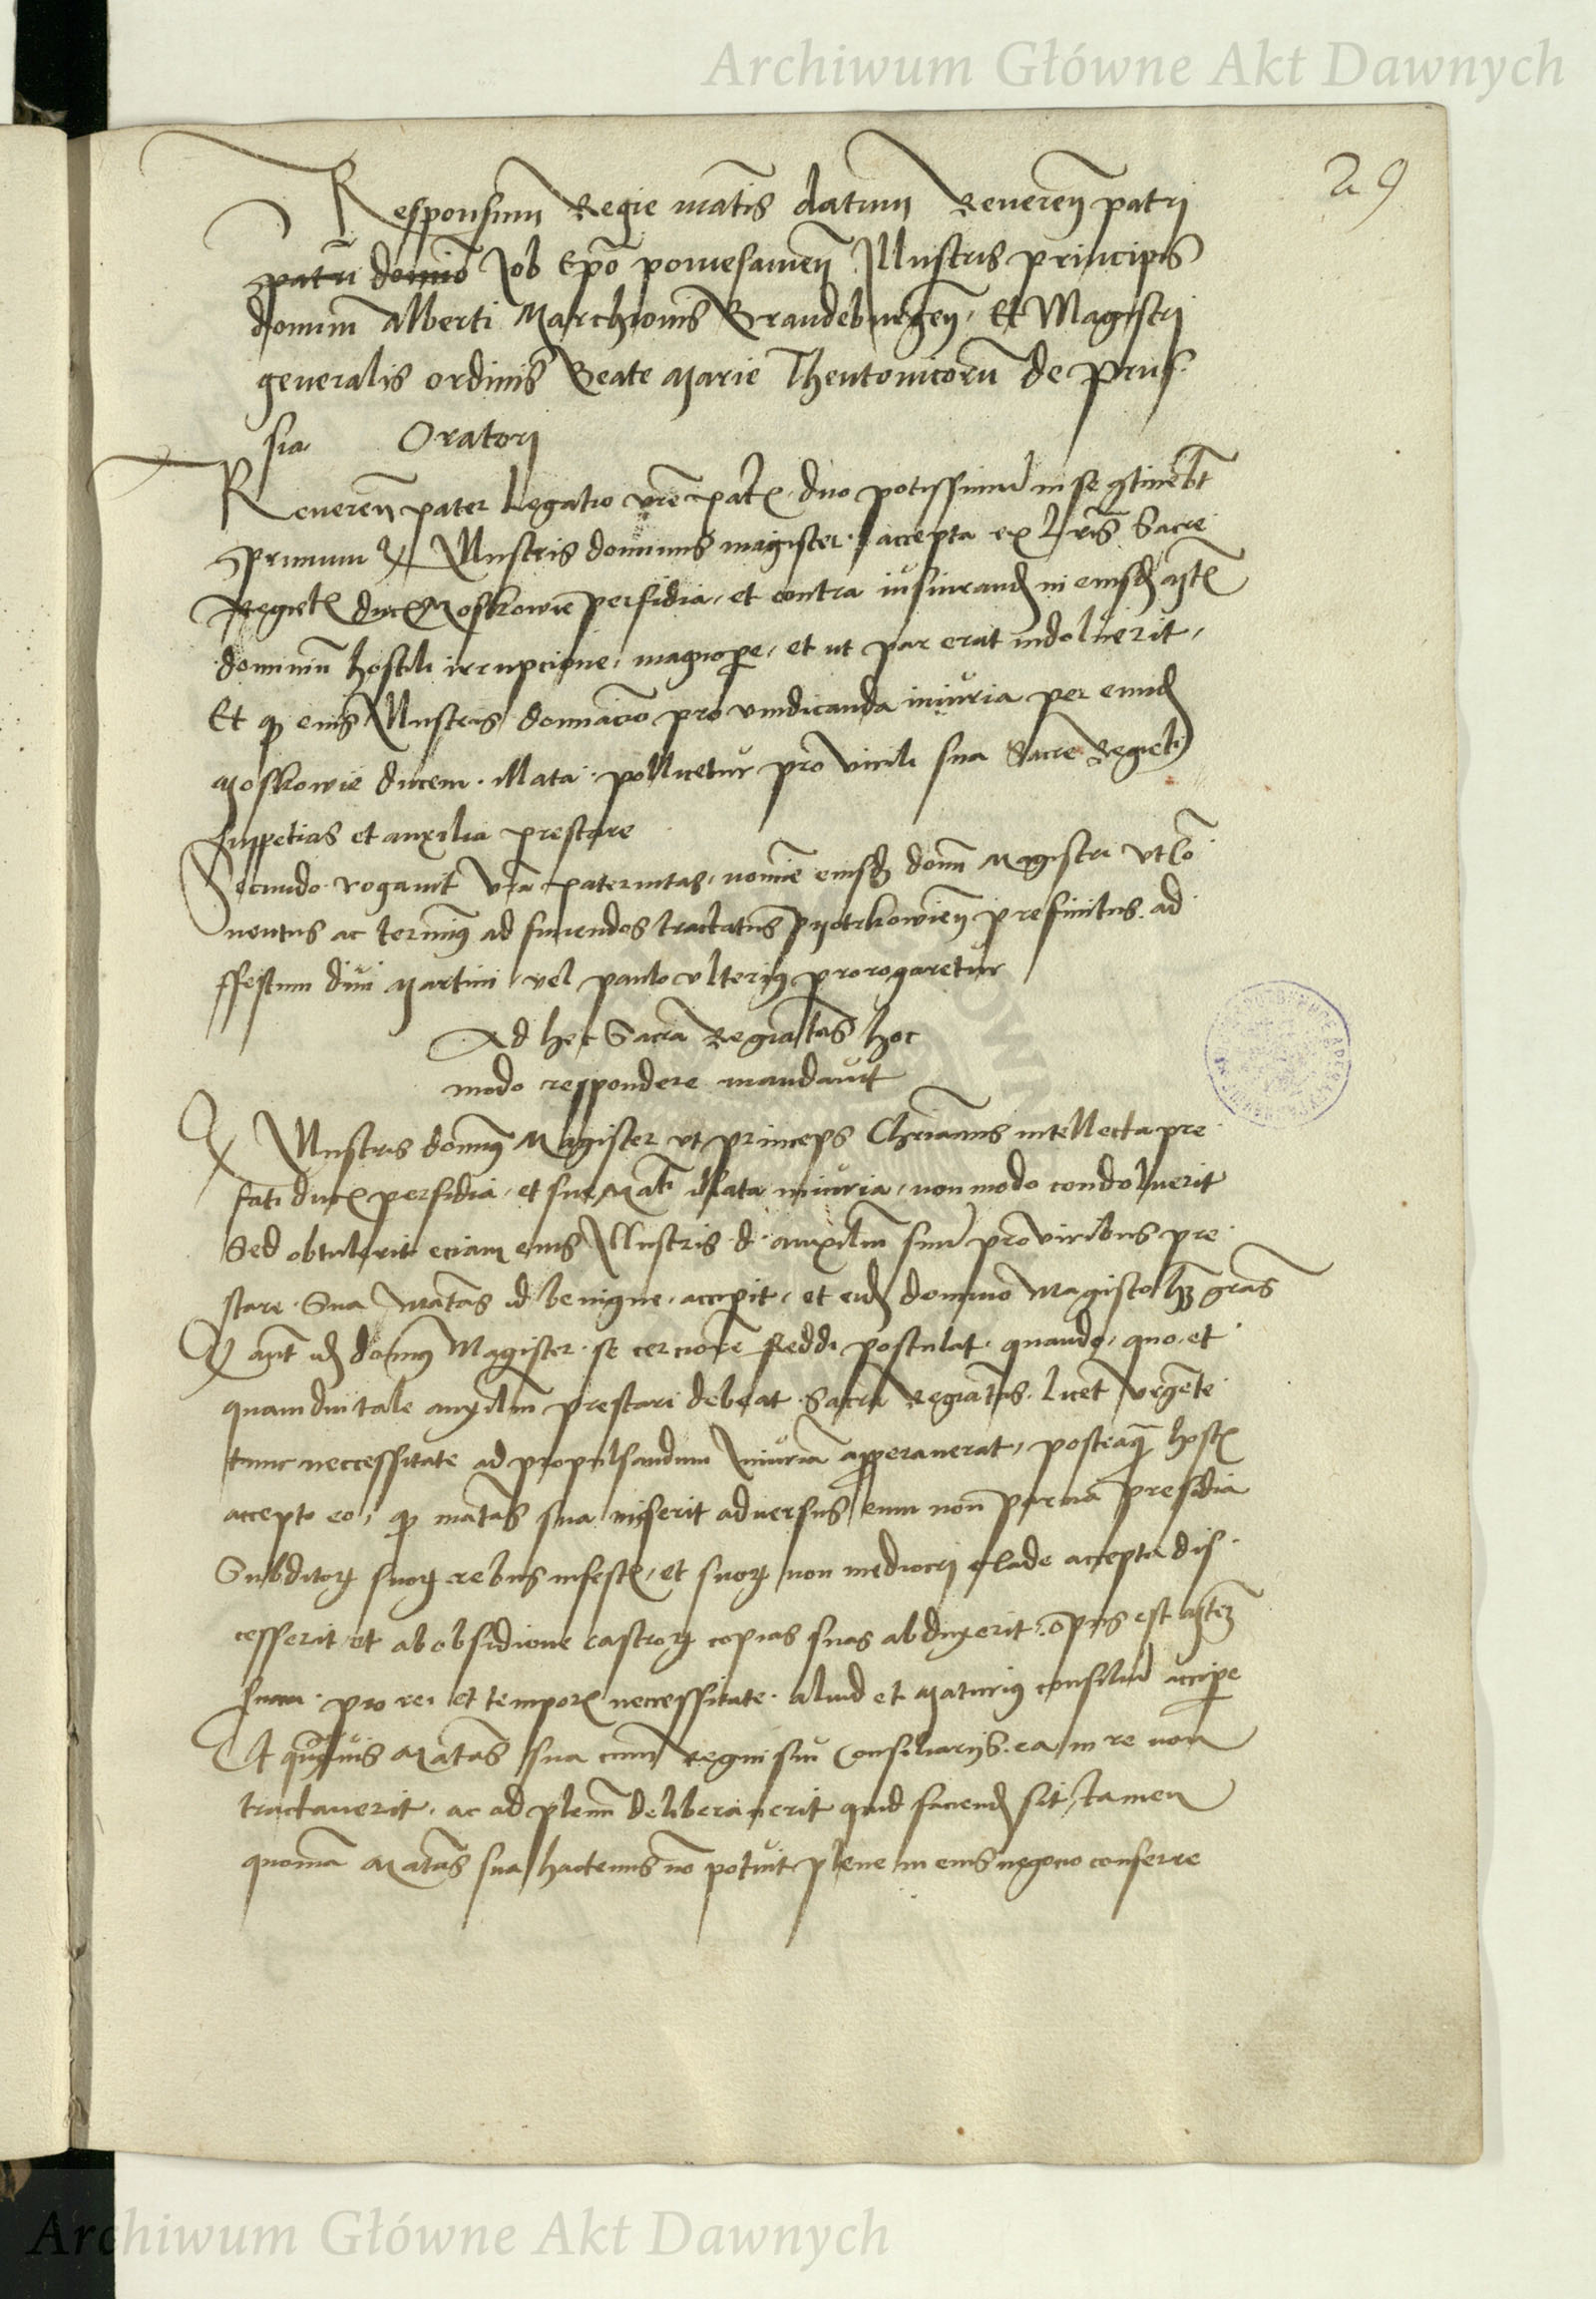 Archiwum Główne Akt Dawnych
29
Responsum Regie matis datum Reueren patri
patri domino Job Epo pomesanien Illustris principis
domini Alberti Marchionis Brandeburgen, Et Magistri
generalis ordinis Beate Marie Theutonicoru de Prus
sia Oratori
Reueren pater Legatio vre pater duo potissimu in se gtinebt
Primum Illustris dominus magister accepta ex Lris Sacre
ducis Moskowie perfidia, et contra iusiurand in eiusd
dominiu hostili irrupcione, magnope, et ut par erat indoluerit,
Et q eius Illustris dominacio pro vindicanda iniuria per eund
Moskowie ducem illata pollicetur pro virili sua Sacre
suppetias et auxilia prestare
Secundo rogauit vra paternitas, nomine eiusd domi Magistri vt Co
uentus ac terminus ad finiendos tractatus Pyotrkowien prefinitus ad
ffestum diui Martini vel paulo vlterius prorogaretur
Ad hec Sacra Regia mtas hoc
modo respondere mandauit
Q Illustris domins Magister vt princeps Chrianus intellecta pre
fati ducis perfidia, et sue Mati illata iniuria, non modo condoluerit
Sed obtulerit eciam eius Illustris d auxiliu suu pro viribus pre
stare Sua Matas id benigne accipit, et eid domino Magistro hz gras
Q aut id domins Magister se cerciore Reddi postulat quando, quo et
quamdiu tale auxiliu prestari debeat Sacra Regia mtas licet vrgente
tunc neccessitate ad propulsandum Iniuria properauerat, posteaq hostis
accepto eo, q matas sua miserit aduersus eum non parua presidia
Subditor suor rebus infestis, et suor non mediocri clade accepta dis
cesserit et ab obsidione castror copias suas abduxerit, opus est
suam pro rei et temporis neccessitate aliud et Maturius consiliu accipe
Et quauis Matas sua cum regni sui Consiliarijs ea in re non
tractauerit, ac ad plenu deliberauerit quid faciend sit, tamen
quonia Matas sua hactenus no potuit plene in eius negocio conferre
Archiwum Główne Akt Dawnych